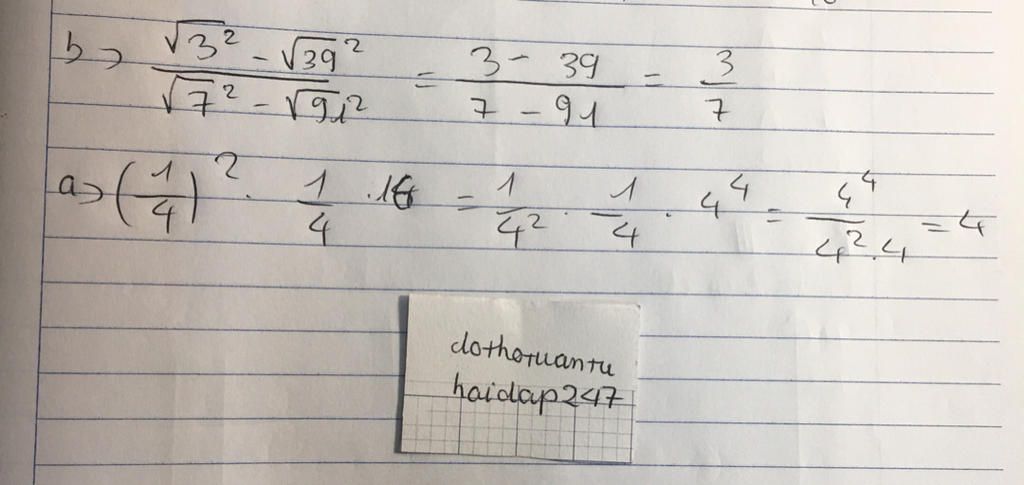 b> \frac{\sqrt{3}^2 - \sqrt{39}^2}{\sqrt{7}^2 - \sqrt{91}^2} = \frac{3 - 39}{7 - 91} = \frac{3}{7}
a> (\frac{1}{4})^2 . \frac{1}{4} . 16 = \frac{1}{4^2} . \frac{1}{4} . 4^4 = \frac{4^4}{4^2.4} = 4
dothotuantu
haidap247